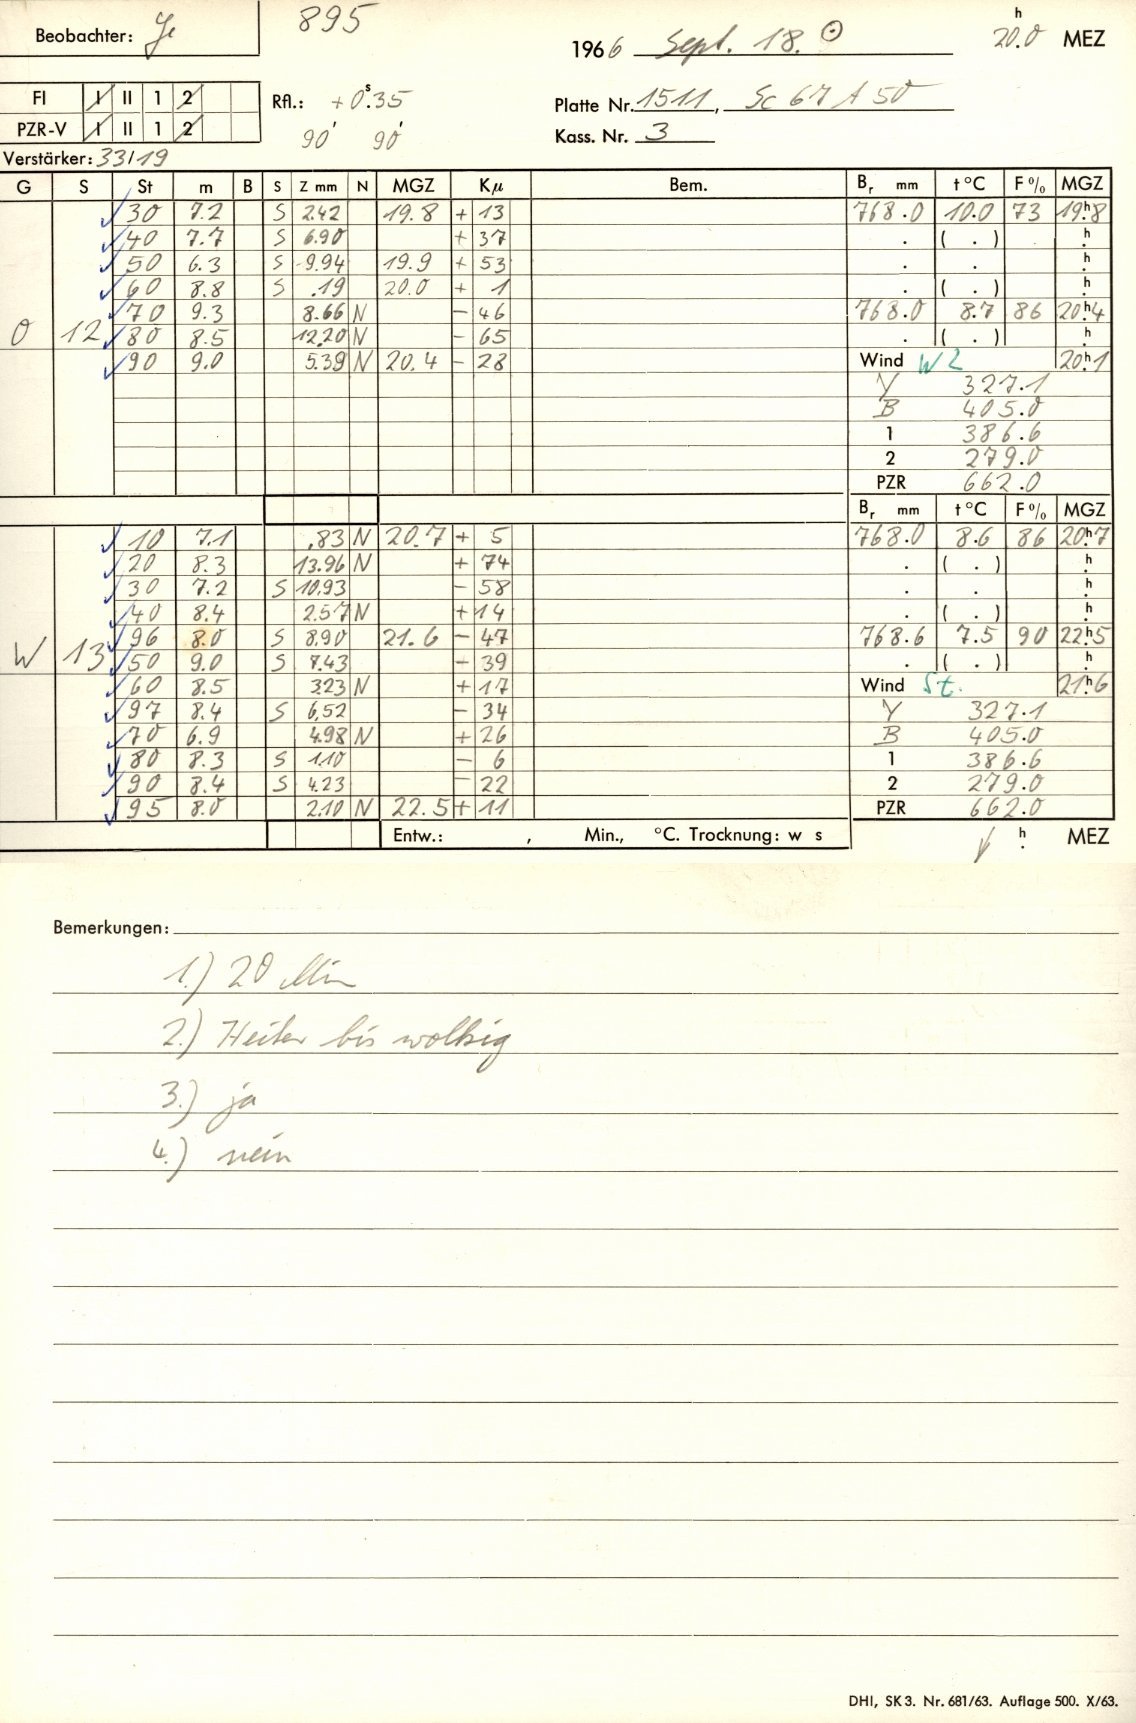 Beobachter: Je
895
1966 Sept. 18. ☉
20.0 h MEZ
FI I II 1 2
PZR-V I II 1 2
Rfl.: +0.35 s
90' 90'
Platte Nr. 1511, Sc 67 A 50
Kass. Nr. 3
Verstärker: 33/19
G S St m B S Z mm N MGZ Kμ Bem. Br mm t °C F % MGZ
30 7.2 S 2.42 19.8 + 13 768.0 10.0 73 19h.8
40 7.7 S 6.90 + 37 . ( . ) h.
50 6.3 S 9.94 19.9 + 53 . . h.
60 8.8 S .19 20.0 + 1 . ( . ) h.
70 9.3 8.66 N - 46 768.0 8.7 86 20h.4
O 12 80 8.5 12.20 N - 65 . ( . ) h.
90 9.0 5.39 N 20.4 - 28 Wind W 2 20h.1
Y 327.1
B 405.0
1 386.6
2 279.0
PZR 662.0
Br mm t °C F % MGZ
10 7.1 .83 N 20.7 + 5 768.0 8.6 86 20h.7
20 8.3 13.96 N + 74 . ( . ) h.
30 7.2 S 10.93 - 58 . . h.
40 8.4 2.57 N + 14 . ( . ) h.
96 8.0 S 8.90 21.6 - 47 768.6 7.5 90 22h.5
W 13 50 9.0 S 7.43 - 39 . ( . ) h.
60 8.5 3.23 N + 17 Wind St. 21h.6
97 8.4 S 6.52 - 34 Y 327.1
70 6.9 4.98 N + 26 B 405.0
80 8.3 S 1.10 - 6 1 386.6
90 8.4 S 4.23 - 22 2 279.0
95 8.0 2.10 N 22.5 + 11 PZR 662.0
Entw.: , Min., °C. Trocknung: w s h. MEZ
Bemerkungen:
1.) 20 Min
2.) Heiter bis wolkig
3.) ja
4.) nein
DHI, SK 3. Nr. 681/63. Auflage 500. X/63.